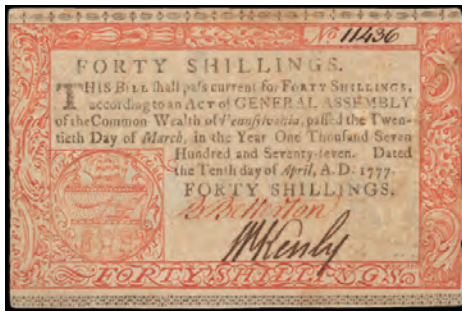 No 11436
FORTY SHILLINGS.
THIS BILL shall pass current for FORTY SHILLINGS,
according to an ACT of GENERAL ASSEMBLY
of the Common Wealth of Pennsylvania, passed the Twen-
tieth Day of March, in the Year One Thousand Seven
Hundred and Seventy-seven. Dated
the Tenth day of April, A.D. 1777.
FORTY SHILLINGS.
FORTY SHILLINGS